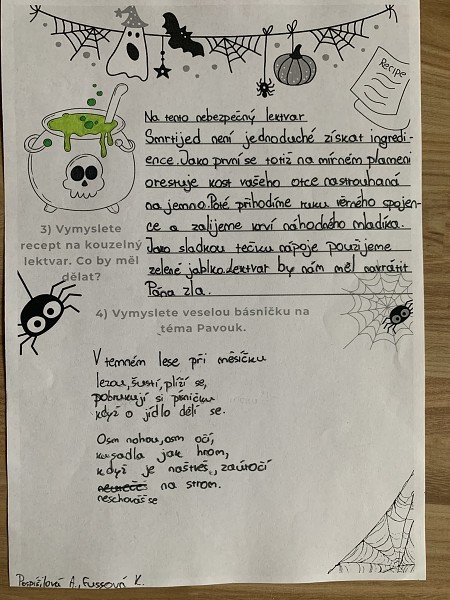 RECIPE
Na tento nebezpečný lektvar
Smrtijed není jednoduché získat ingredi-
ence. Jako první se totiž na mírném plameni
orestuje kost vašeho otce nastrouhaná
na jemno. Poté přihodíme ruku věrného spojen-
ce a zalijeme krví náhodného mladíka.
Jako sladkou tečku nápoje použijeme
zelené jablko. Lektvar by nám měl navrátit
Pána zla.
3) Vymyslete
recept na kouzelný
lektvar. Co by měl
dělat?
4) Vymyslete veselou básničku na
téma Pavouk.
V temném lese při měsíčku
lezou, šustí, plíží se,
pobrukují si písničku
když o jídlo dělí se.
Osm nohou, osm očí,
kusadla jak hrom,
když je naštveš, zaútočí
neutečeš na strom.
neschováš se
Pospíšilová A., Fussová K.